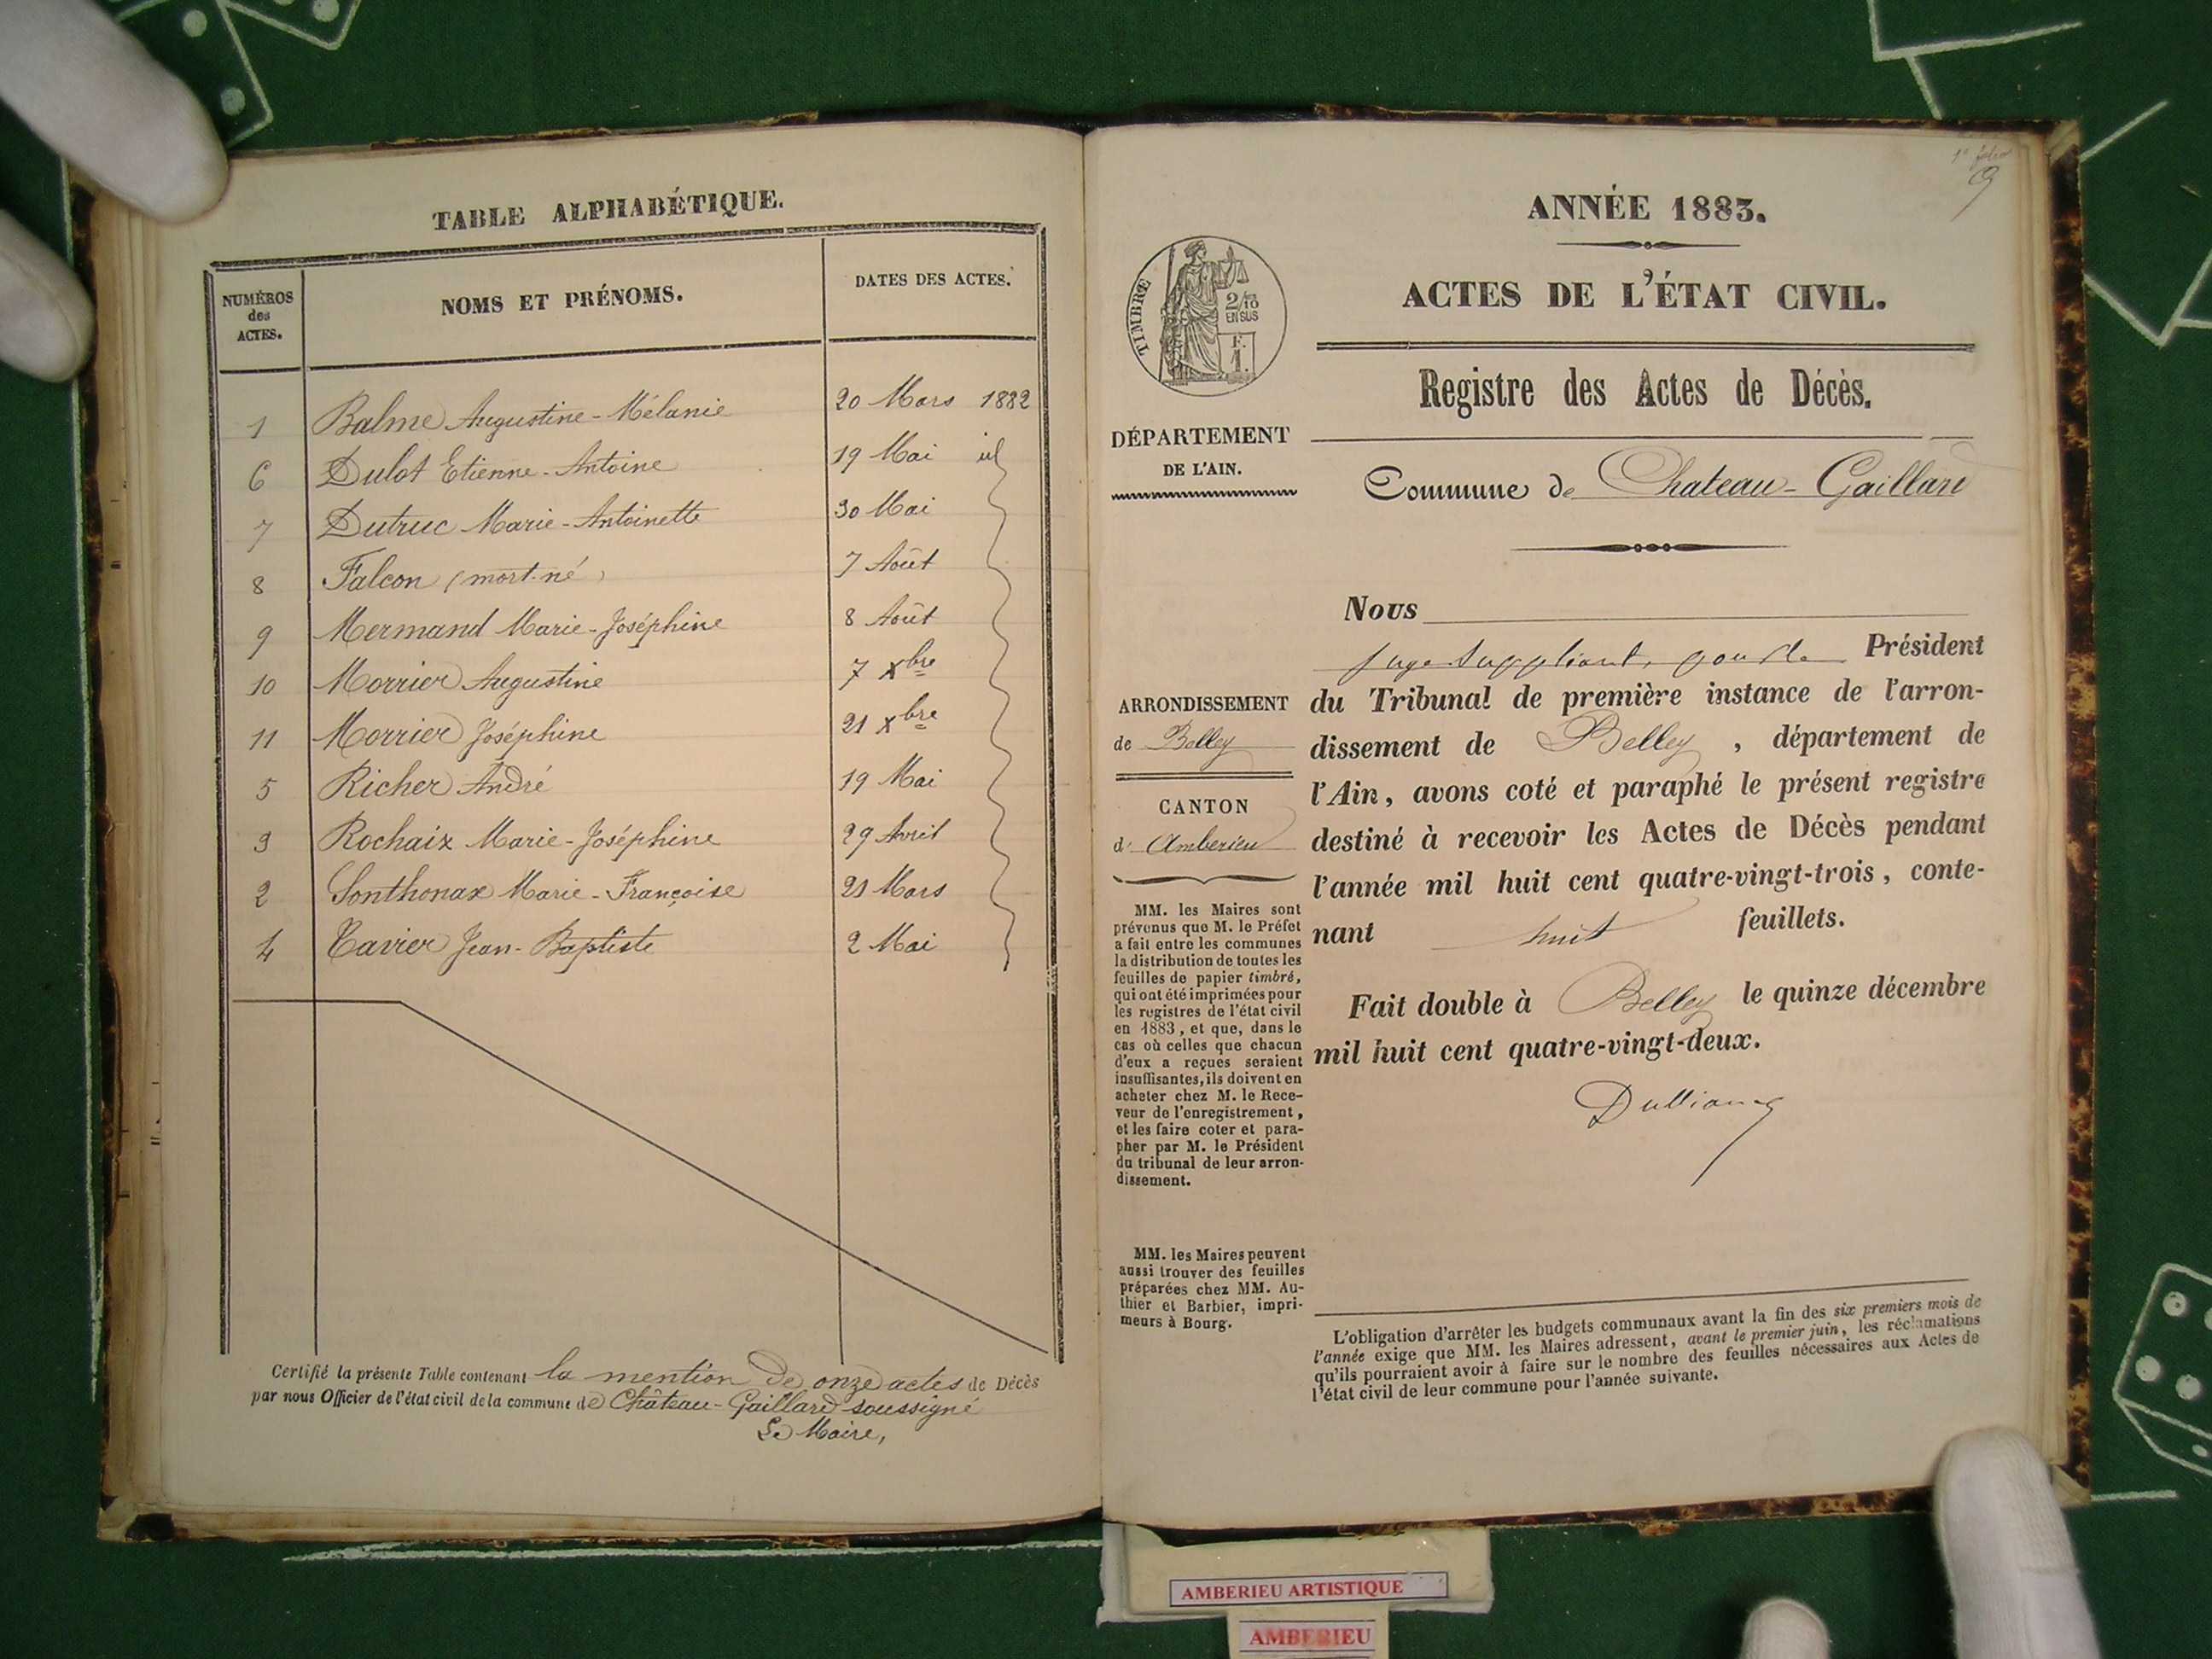 TABLE ALPHABÉTIQUE.
NUMÉROS des ACTES.
NOMS ET PRÉNOMS.
DATES DES ACTES.
1 Balme Augustine-Mélanie 20 Mars 1882
6 Dulot Etienne-Antoine 19 Mai id
7 Dutruc Marie-Antoinette 30 Mai
8 Falcon (mort-né) 7 Août
9 Mermand Marie-Joséphine 8 Août
10 Morrier Augustine 7 Xbre
11 Morrier Joséphine 21 Xbre
5 Richer André 19 Mai
3 Rochaix Marie-Joséphine 29 Avril
2 Sonthonax Marie-Françoise 21 Mars
4 Tavier Jean-Baptiste 2 Mai
Certifié la présente Table contenant la mention de onze actes de Décès
par nous Officier de l'état civil de la commune de Château-Gaillard soussigné
Le Maire,
1er
ANNÉE 1883.
ACTES DE L'ÉTAT CIVIL.
TIMBRE
2/10
EN SUS
F.
1.
Registre des Actes de Décès.
DÉPARTEMENT
DE L'AIN.
Commune de Chateau-Gaillard
ARRONDISSEMENT
de Belley
CANTON
d' Amberieu
MM. les Maires sont
prévenus que M. le Préfet
a fait entre les communes
la distribution de toutes les
feuilles de papier timbré,
qui ont été imprimées pour
les registres de l'état civil
en 1883, et que, dans le
cas où celles que chacun
d'eux a reçues seraient
insuffisantes, ils doivent en
acheter chez M. le Rece-
veur de l'enregistrement,
et les faire coter et para-
pher par M. le Président
du tribunal de leur arron-
dissement.
MM. les Maires peuvent
aussi trouver des feuilles
préparées chez MM. Au-
thier et Barbier, impri-
meurs à Bourg.
Nous
juge suppléant, pour le Président
du Tribunal de première instance de l'arron-
dissement de Belley, département de
l'Ain, avons coté et paraphé le présent registre
destiné à recevoir les Actes de Décès pendant
l'année mil huit cent quatre-vingt-trois, conte-
nant huit feuillets.
Fait double à Belley le quinze décembre
mil huit cent quatre-vingt-deux.
L'obligation d'arrêter les budgets communaux avant la fin des six premiers mois de
l'année exige que MM. les Maires adressent, avant le premier juin, les réclamations
qu'ils pourraient avoir à faire sur le nombre des feuilles nécessaires aux Actes de
l'état civil de leur commune pour l'année suivante.
AMBERIEU ARTISTIQUE
AMBERIEU